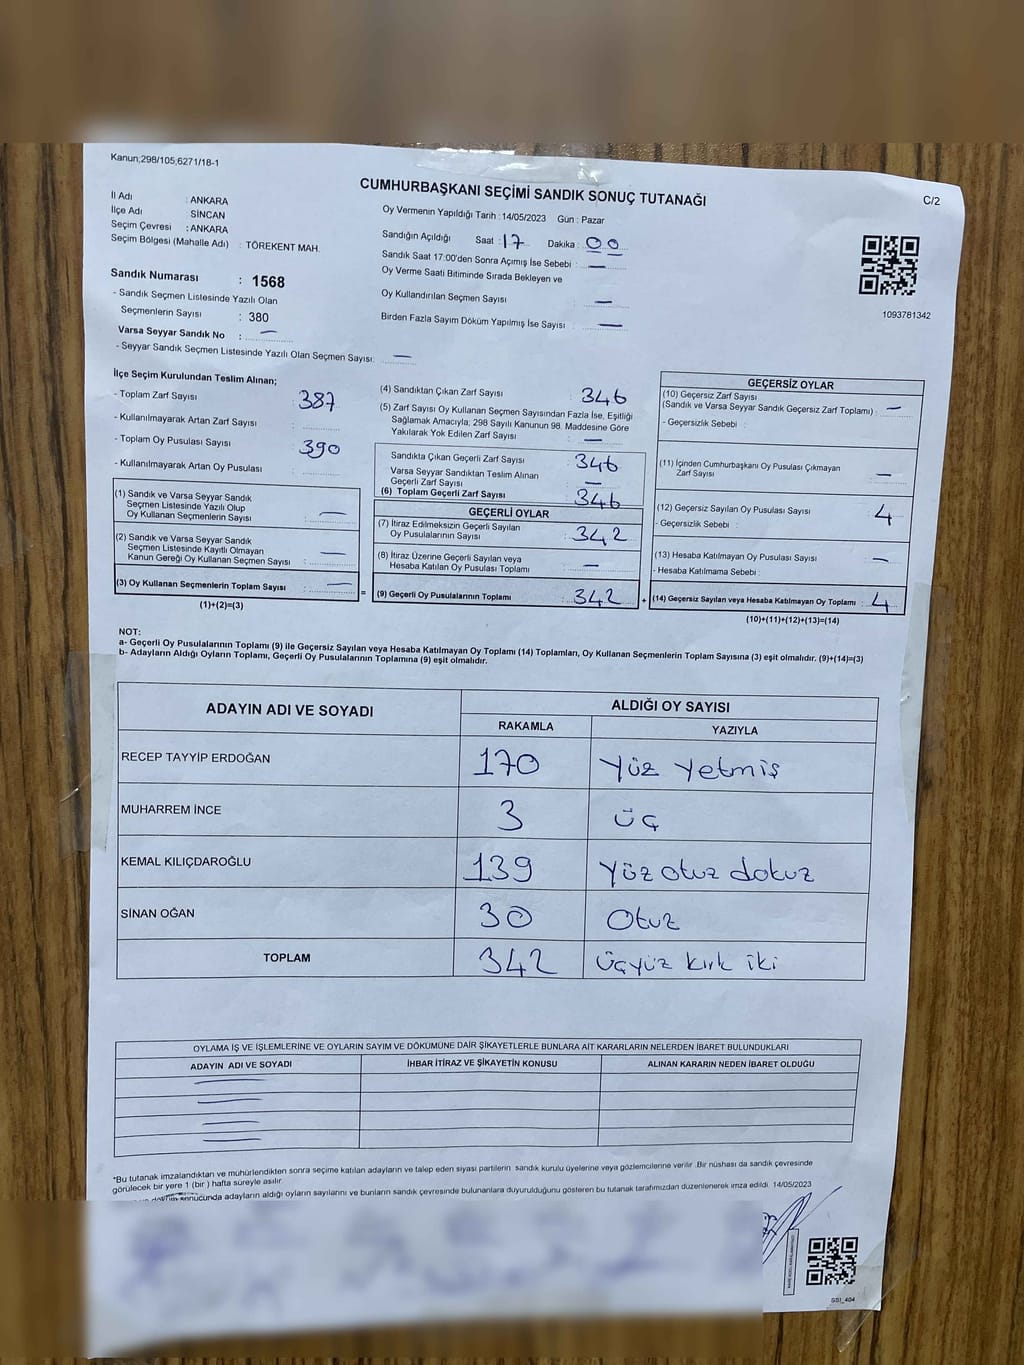 Kanun;298/105;6271/18-1
CUMHURBAŞKANI SEÇİMİ SANDIK SONUÇ TUTANAĞI
C/2
İl Adı : ANKARA
İlçe Adı SİNCAN
Seçim Çevresi : ANKARA
Seçim Bölgesi (Mahalle Adı) : TÖREKENT MAH.
Oy Vermenin Yapıldığı Tarih :14/05/2023 Gün : Pazar
Sandığın Açıldığı Saat : 17 Dakika : 00
Sandık Saat 17:00'den Sonra Açımış İse Sebebi : —
Oy Verme Saati Bitiminde Sırada Bekleyen ve
Oy Kullandırılan Seçmen Sayısı —
Birden Fazla Sayım Döküm Yapılmış İse Sayısı : —
1093781342
Sandık Numarası : 1568
- Sandık Seçmen Listesinde Yazılı Olan
Seçmenlerin Sayısı : 380
Varsa Seyyar Sandık No : —
- Seyyar Sandık Seçmen Listesinde Yazılı Olan Seçmen Sayısı: —
İlçe Seçim Kurulundan Teslim Alınan;
- Toplam Zarf Sayısı : 387
- Kullanılmayarak Artan Zarf Sayısı :
- Toplam Oy Pusulası Sayısı : 390
- Kullanılmayarak Artan Oy Pusulası :
(1) Sandık ve Varsa Seyyar Sandık
Seçmen Listesinde Yazılı Olup
Oy Kullanan Seçmenlerin Sayısı : —
(2) Sandık ve Varsa Seyyar Sandık
Seçmen Listesinde Kayıtlı Olmayan
Kanun Gereği Oy Kullanan Seçmen Sayısı : —
(3) Oy Kullanan Seçmenlerin Toplam Sayısı : —
(1)+(2)=(3)
=
(4) Sandıktan Çıkan Zarf Sayısı : 346
(5) Zarf Sayısı Oy Kullanan Seçmen Sayısından Fazla İse, Eşitliği
Sağlamak Amacıyla; 298 Sayılı Kanunun 98. Maddesine Göre
Yakılarak Yok Edilen Zarf Sayısı : —
Sandıkta Çıkan Geçerli Zarf Sayısı : 346
Varsa Seyyar Sandıktan Teslim Alınan
Geçerli Zarf Sayısı : —
(6) Toplam Geçerli Zarf Sayısı : 346
GEÇERLİ OYLAR
(7) İtiraz Edilmeksizin Geçerli Sayılan
Oy Pusulalarının Sayısı : 342
(8) İtiraz Üzerine Geçerli Sayılan veya
Hesaba Katılan Oy Pusulası Toplamı : —
(9) Geçerli Oy Pusulalarının Toplamı : 342
+
GEÇERSİZ OYLAR
(10) Geçersiz Zarf Sayısı
(Sandık ve Varsa Seyyar Sandık Geçersiz Zarf Toplamı) : —
- Geçersizlik Sebebi :
(11) İçinden Cumhurbaşkanı Oy Pusulası Çıkmayan
Zarf Sayısı : —
(12) Geçersiz Sayılan Oy Pusulası Sayısı : 4
- Geçersizlik Sebebi :
(13) Hesaba Katılmayan Oy Pusulası Sayısı : —
- Hesaba Katılmama Sebebi :
(14) Geçersiz Sayılan veya Hesaba Katılmayan Oy Toplamı : 4
(10)+(11)+(12)+(13)=(14)
NOT:
a- Geçerli Oy Pusulalarının Toplamı (9) ile Geçersiz Sayılan veya Hesaba Katılmayan Oy Toplamı (14) Toplamları, Oy Kullanan Seçmenlerin Toplam Sayısına (3) eşit olmalıdır. (9)+(14)=(3)
b- Adayların Aldığı Oyların Toplamı, Geçerli Oy Pusulalarının Toplamına (9) eşit olmalıdır.
ADAYIN ADI VE SOYADI ALDIĞI OY SAYISI
RAKAMLA YAZIYLA
RECEP TAYYİP ERDOĞAN 170 Yüz Yetmiş
MUHARREM İNCE 3 üç
KEMAL KILIÇDAROĞLU 139 Yüz otuz dokuz
SİNAN OĞAN 30 Otuz
TOPLAM 342 üçyüz kırk iki
OYLAMA İŞ VE İŞLEMLERİNE VE OYLARIN SAYIM VE DÖKÜMÜNE DAİR ŞİKAYETLERLE BUNLARA AİT KARARLARIN NELERDEN İBARET BULUNDUKLARI
ADAYIN ADI VE SOYADI İHBAR İTİRAZ VE ŞİKAYETİN KONUSU ALINAN KARARIN NEDEN İBARET OLDUĞU
*Bu tutanak imzalandıktan ve mühürlendikten sonra seçime katılan adayların ve talep eden siyasi partilerin sandık kurulu üyelerine veya gözlemcilerine verilir .Bir nüshası da sandık çevresinde
görülecek bir yere 1 (bir ) hafta süreyle asılır
sonucunda adayların aldığı oyların sayılarını ve bunların sandık çevresinde bulunanlara duyurulduğunu gösteren bu tutanak tarafımızdan düzenlenerek imza edildi. 14/05/2023
SSI_404